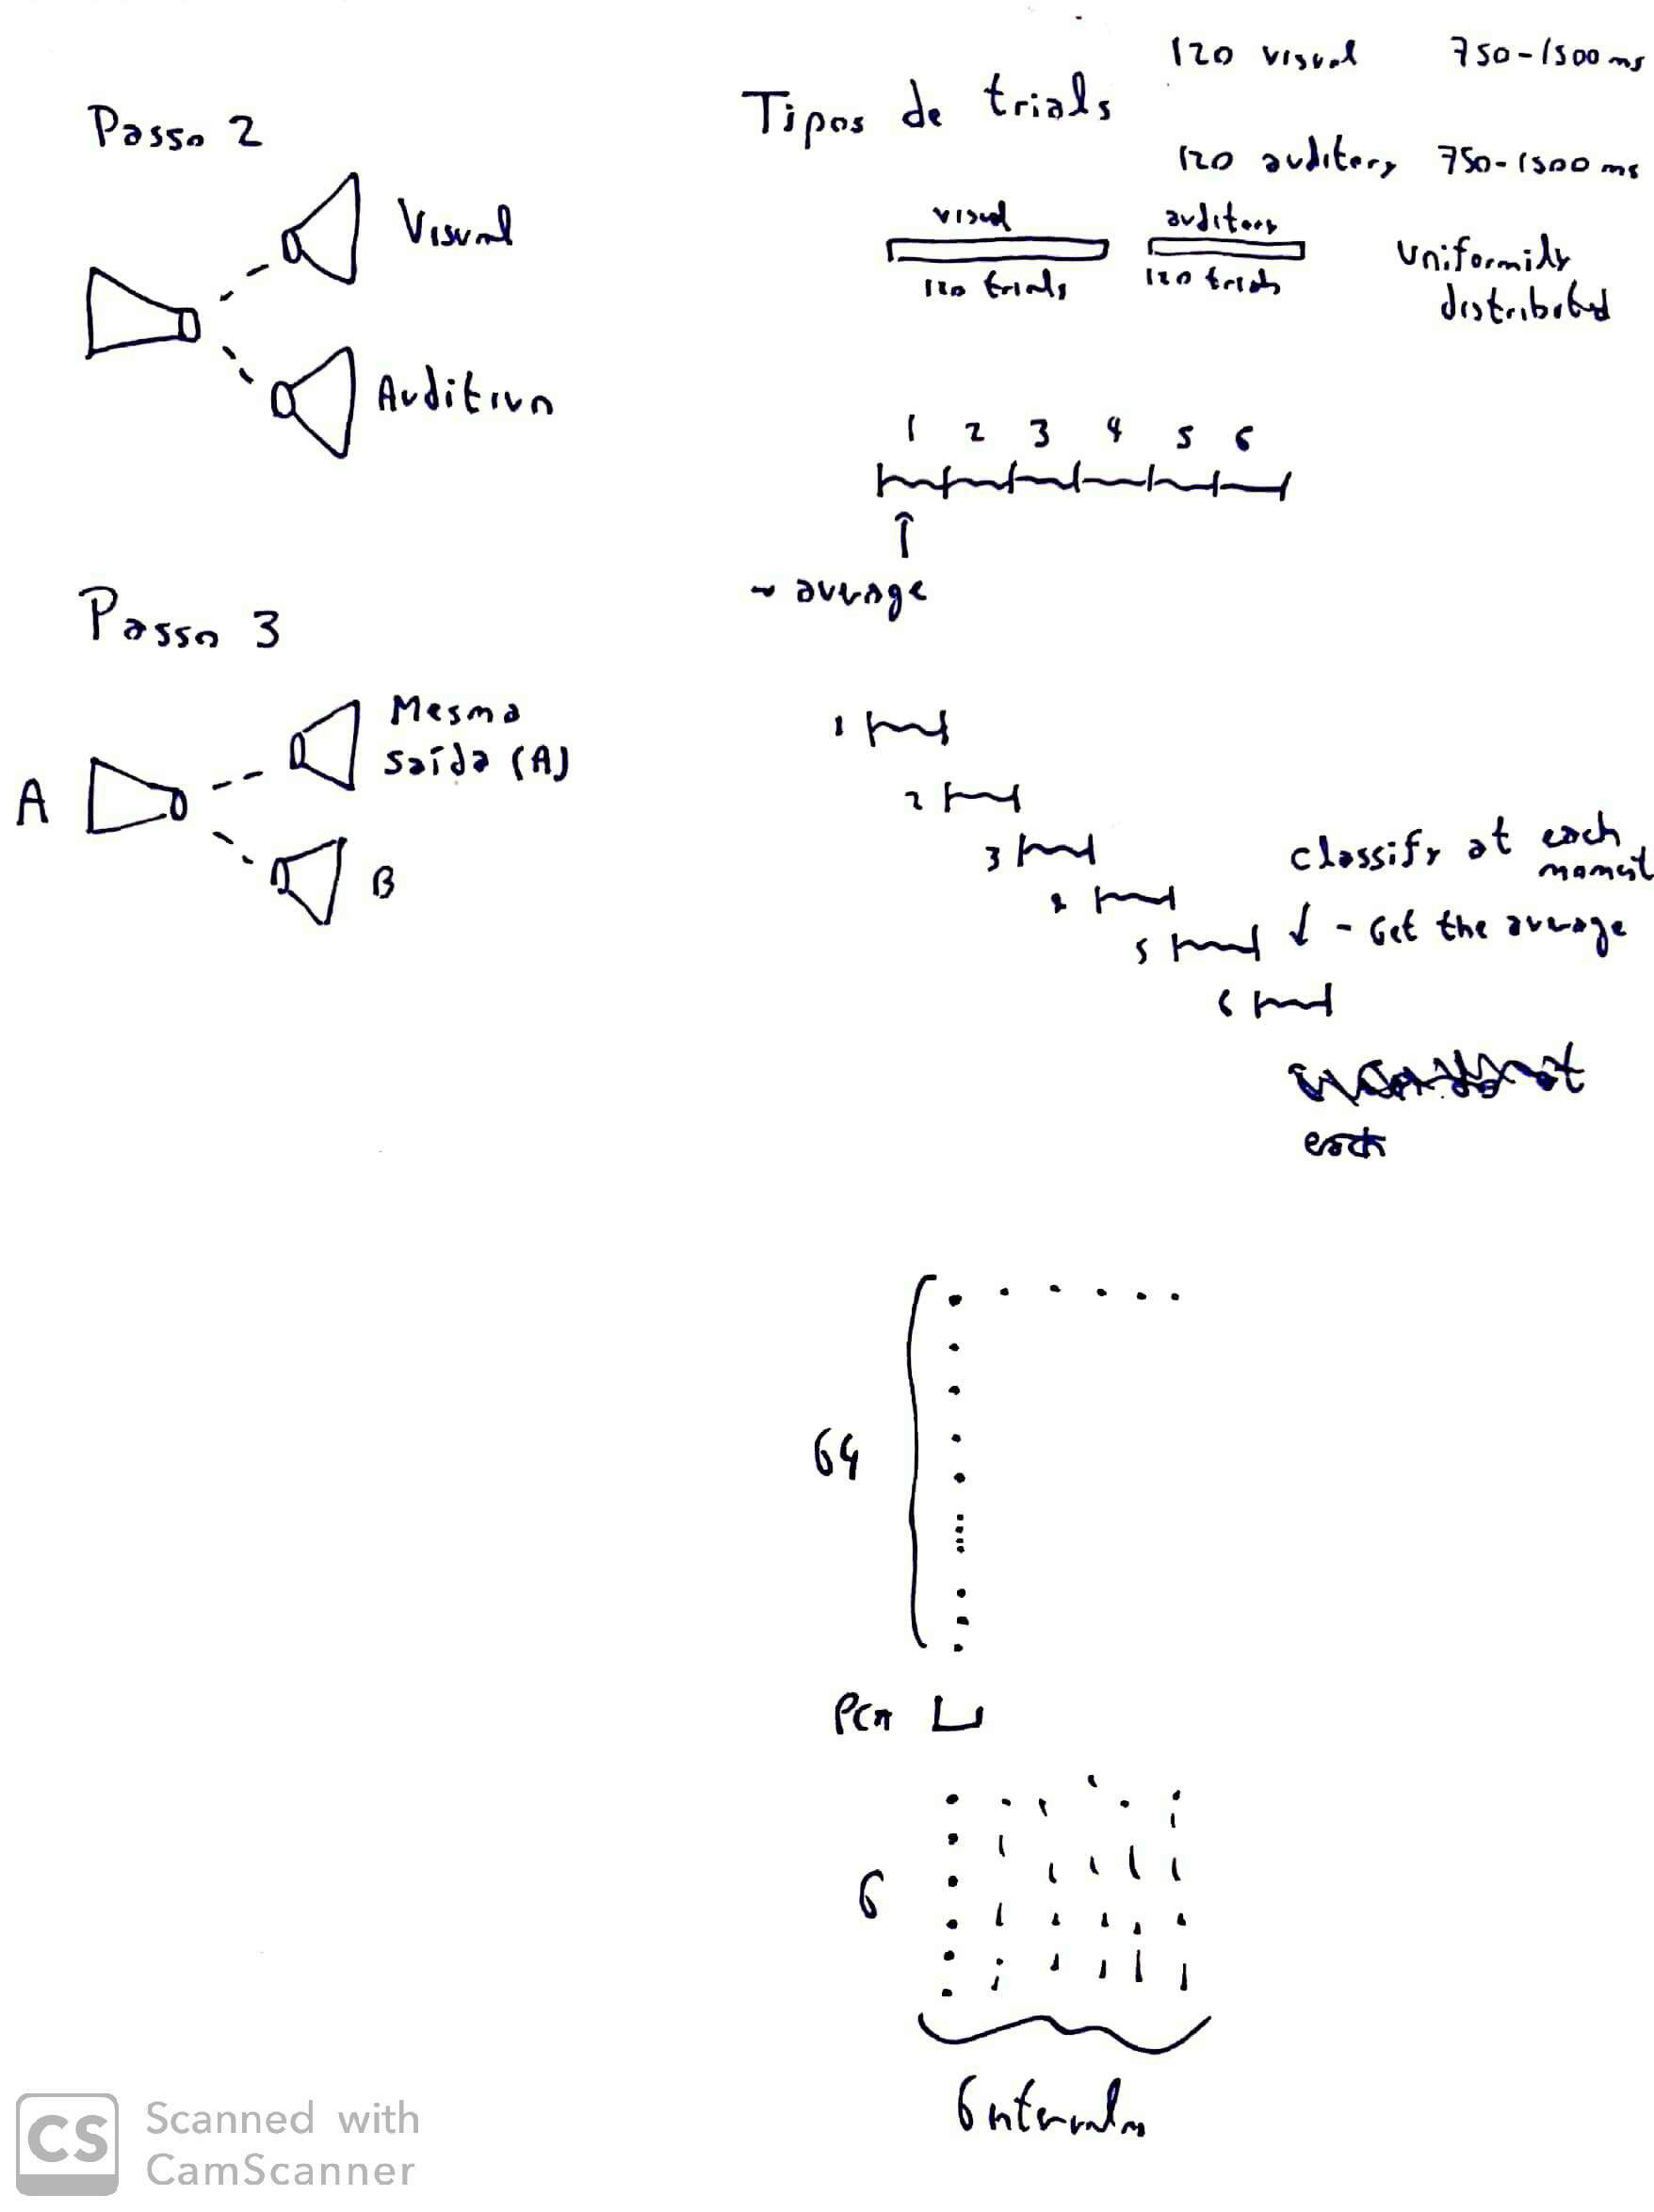 Passo 2
Visual
Auditivo
Passo 3
A
Mesma
saída (A)
B
Tipos de trials
120 visual 750-1500 ms
120 auditory 750-1500 ms
visual
120 trials
auditory
120 trials
Uniformily
distributed
1 2 3 4 5 6
~ average
1
2
3
5
6
classify at each
moment
↓ - Get the average
each
64
PCA
6
6 intervals
CS
Scanned with
CamScanner